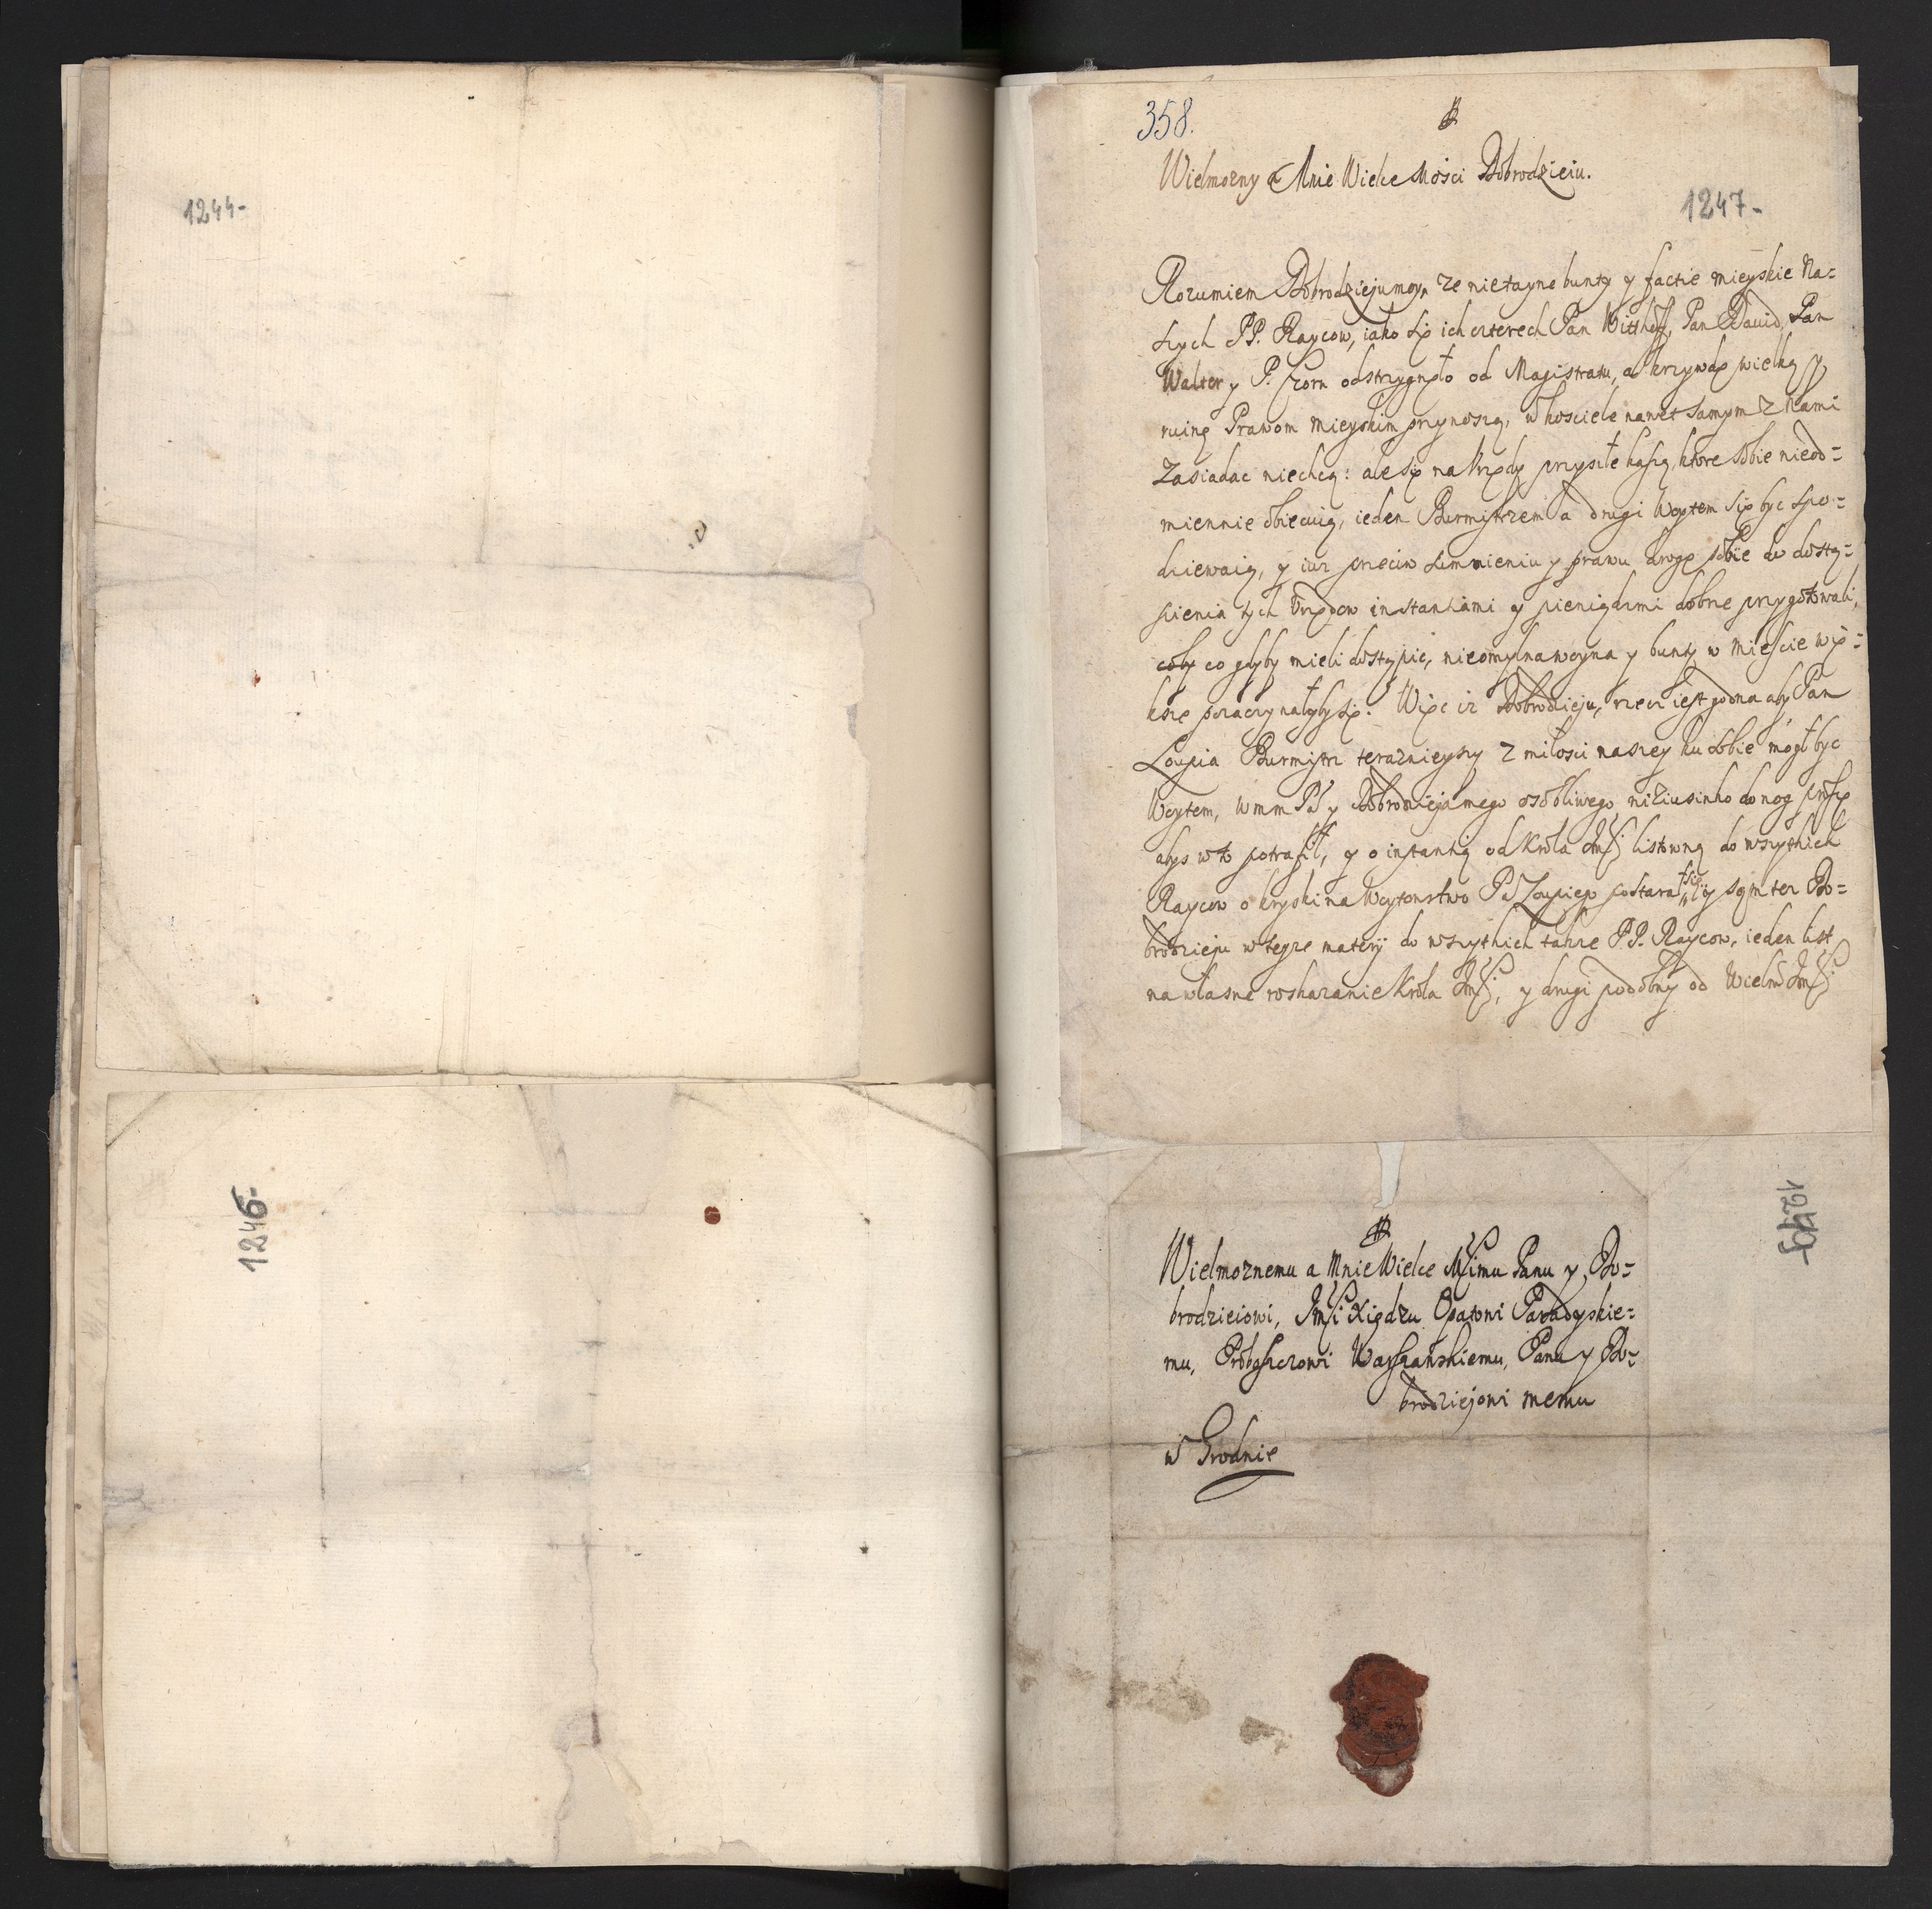 1244-
1246-
358.
Wielmozny a Mnie Wielce Mości Dobrodzieiu.
1247-
Rozumiem Dobrodziejumoy, ze nietayne bunty y factie mieyskie Na=
szych PP. Raycow, iako się ich czterech Pan Witthoff, Pan Dawid, Pan
Walter y P. Czorn odstrzygnęło od Magistratu, a krzywdę wielką y
ruinę Prawom mieyskim przynoszą, w kosciele nawet samym z nami
Zasiadac niechcą: ale się na Vrzędy przysiłe kaszą, ktore sobie nieod=
miennie obiecuią, ieden Burmistrzem a drugi Woytem się byc spo=
dziewaią, y iuz przeciw sumnieniu y prawu drogę sobie do dostą=
pienia tych Vrzędow instantiami y pieniądzmi dobrze przygotowali,
coby co gdyby mieli dostąpic, nieomylna woyna y bunty w miescie wię=
ksze poczynałyby się. Więc iz Dobrodzieju, rzecz iest godna aby Pan
Loupia Burmistrz teraznieyszy z miłosci naszey ku sobie mogł byc
Woytem, wmm Pa y Dobrodzieja mego osobliwego niziusinko do nog
abys w to potrafił, y o instantią od Krola Jmści listowną do wszytkich
Raycow o kryski na Woytowstwo Pa Loupiego postarał się y sam tez Do=
brodzieju w teyze materÿ do wszytkich takze PP. Raycow, ieden list
na własne roskazanie Krola Jmści, y drugi podobny od Wielm Jmści
Wielmoznemu a Mnie Wielce Mścimu Panu y Do=
brodzieiowi, Jmści Xiędzu Opatowi Paradyskie=
mu, Proboszczowi Warszawskiemu, Panu y Do=
brodziejowi memu
w Grodnie